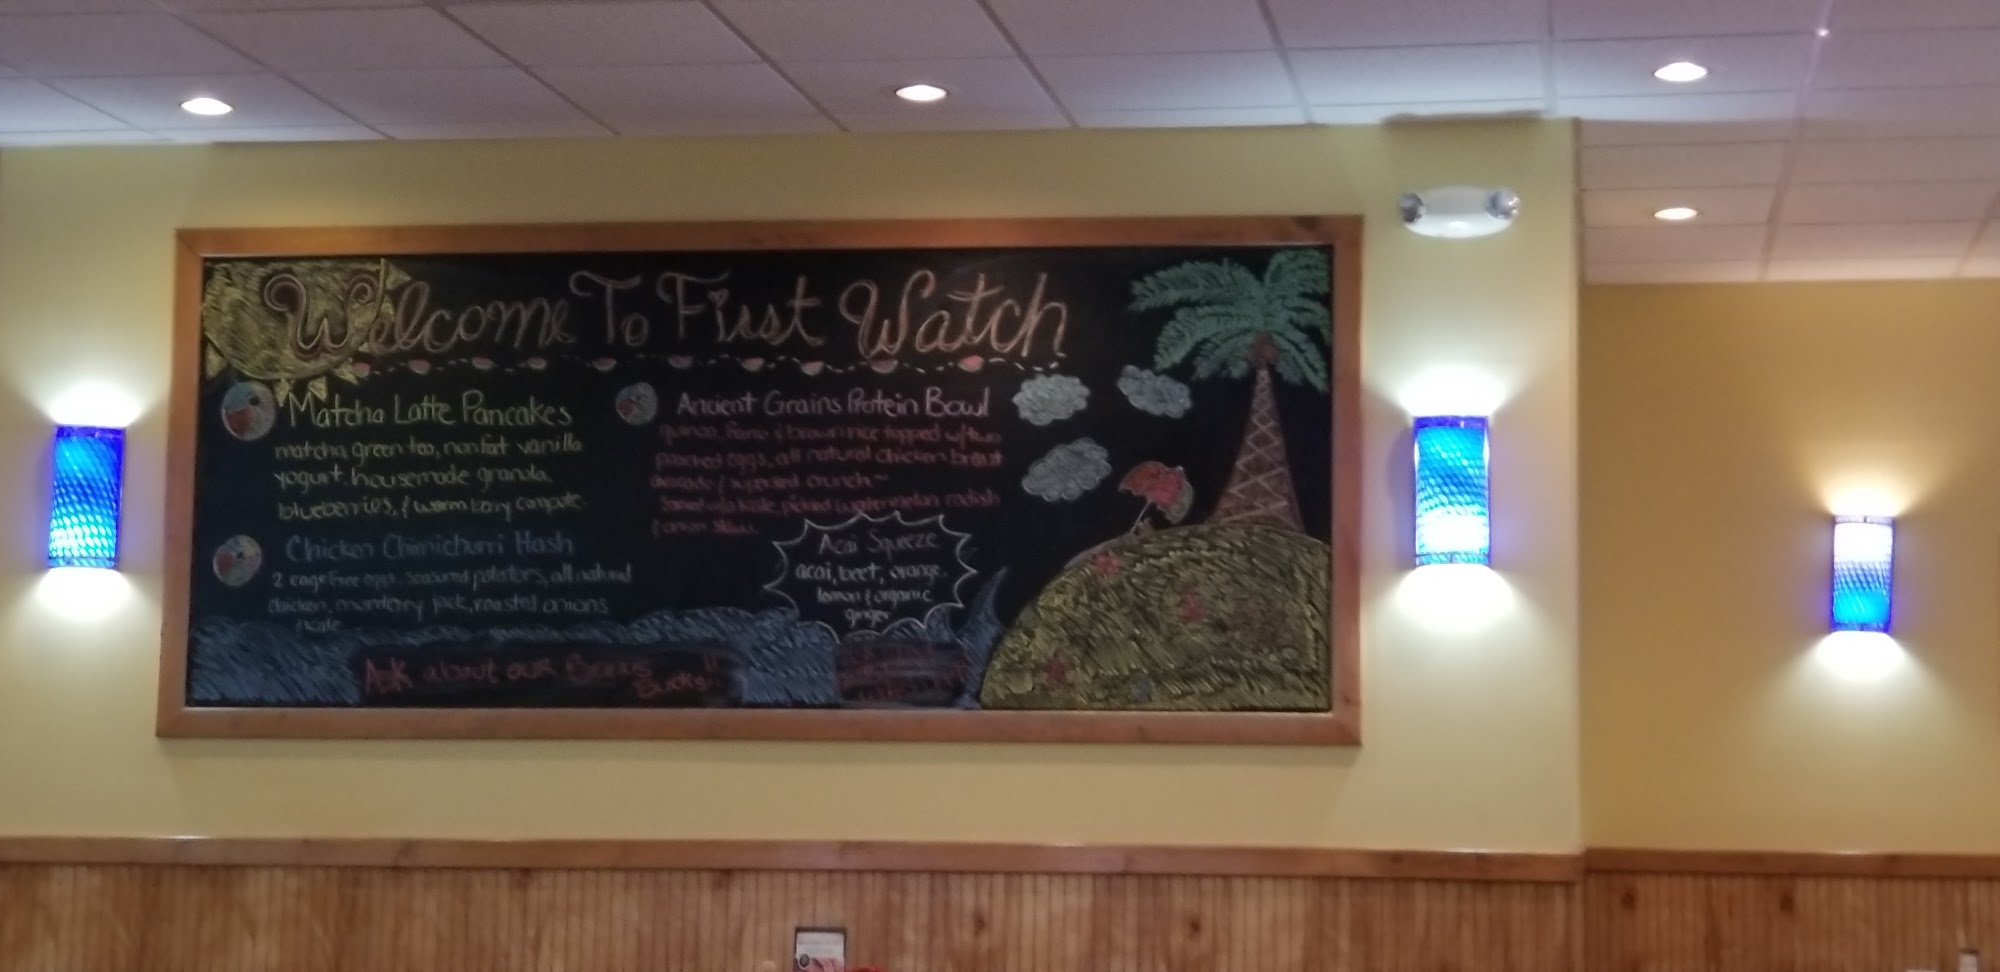 Welcome To First Watch
Matcha Latte Pancakes
matcha green tea, nonfat vanilla
yogurt, housemade granola,
blueberries, & warm berry compote
Chicken Chimichurri Hash
2 cage free eggs, seasoned potatoes, all natural
chicken, monterey jack, roasted onions
& kale
Ancient Grains Protein Bowl
quinoa, farro & brown rice topped w/ two
poached eggs, all natural chicken breast
avocado & crunch ~
kale, pickled watermelon radish
& onion slaw
Acai Squeeze
acai, beet, orange,
lemon & organic
ginger
Ask about our Bonus
Bucks!!